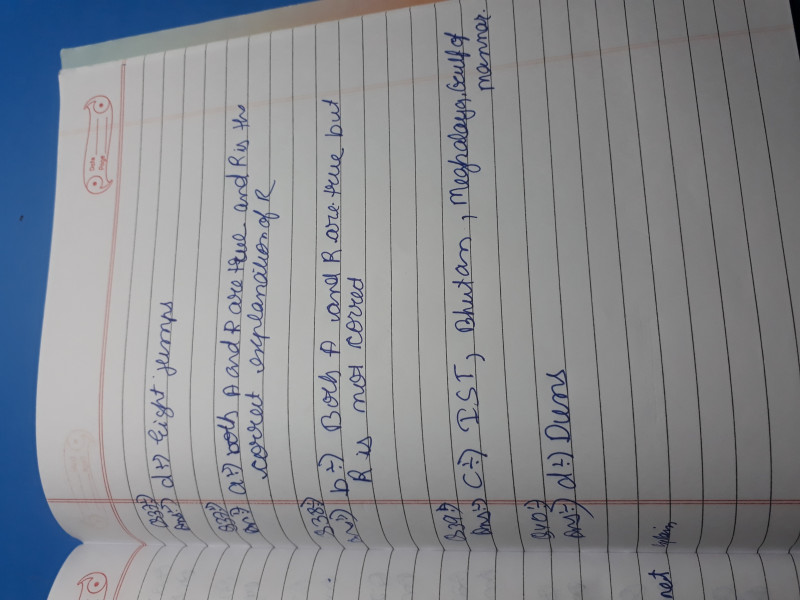 Date
Page
Q37÷)
Ans÷) d÷) Eight jumps
Q37÷)
an÷) a÷) both A and R are true and R is the
correct explanation of R
Q38÷)
an÷) b÷) Both A and R are true but
R is not corred
Q39÷)
Ans÷) C÷) IST, Bhutan, Meghalaya, Gulf of
mannar.
Q40÷)
Ans÷) d÷) Duns
net